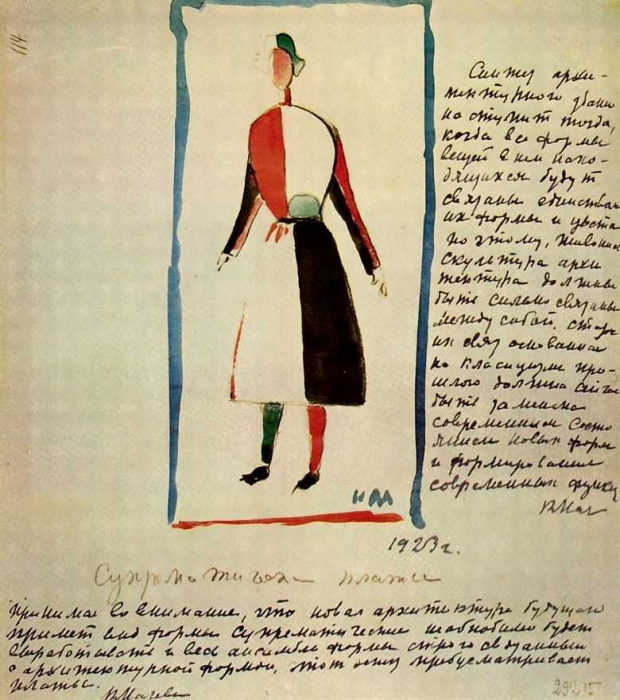 114
Синтез архи-
тектурного здани
наступит тогда,
когда все формы
вещей в нем нахо-
дящихся будут
связаны единством
их формы и цвета
по этому, живопи
скулптура архи
тектура должны
быть сильно связаны
между собой. стара
их связ основанная
на класицизме про-
шлого должна
быть заменена
современным состо
янием новых форм
и формирование
современных функц
КМал
НАА
1923 г.
Супрематическ платье
принимая во внимание, что новая архитектура будущего
примет вид формы супрематические необходимо будет
выработать и весь ансамбль формы строго связанный
с архитектурной формой, этот эскиз предусматривает
платье.
КМалеви